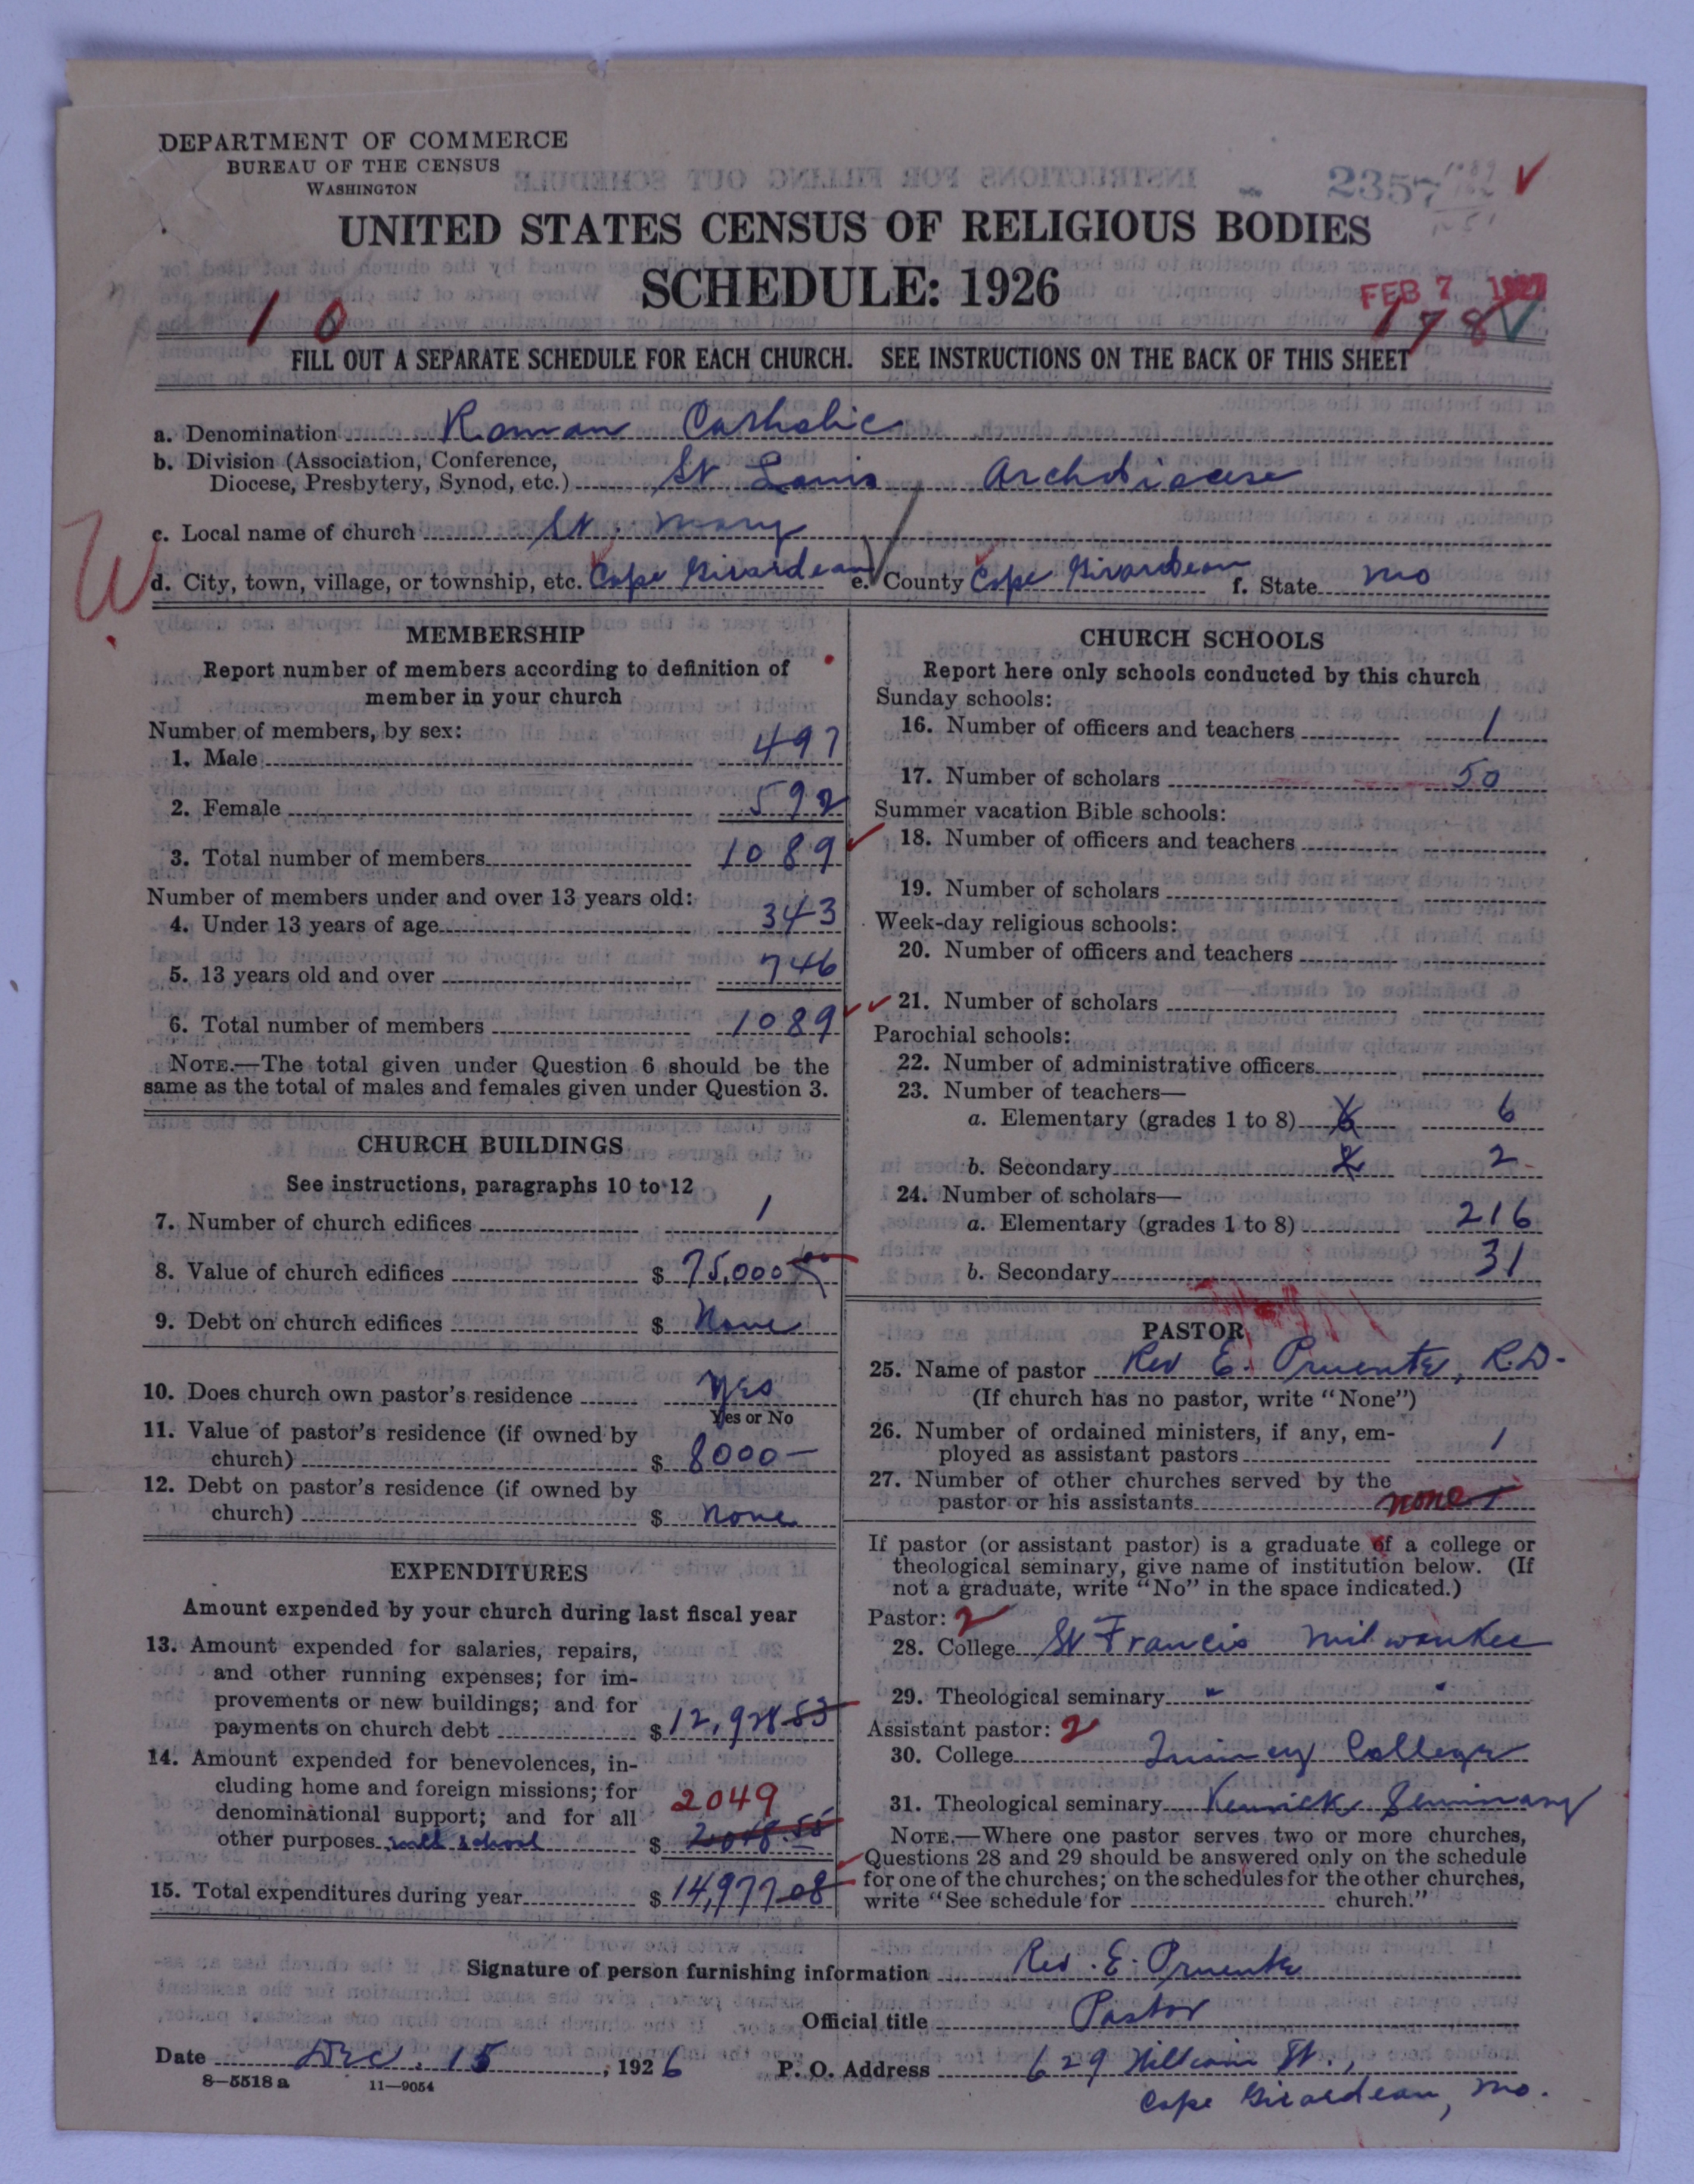 DEPARTMENT OF COMMERCE
BUREAU OF THE CENSUS
WASHINGTON
2357
UNITED STATES CENSUS OF RELIGIOUS BODIES
SCHEDULE: 1926
FEB 7 1927
1 0
178
FILL OUT A SEPARATE SCHEDULE FOR EACH CHURCH. SEE INSTRUCTIONS ON THE BACK OF THIS SHEET
a. Denomination Roman Catholic
b. Division (Association, Conference,
Diocese, Presbytery, Synod, etc.) St Louis Archdiocese
c. Local name of church St. Mary
W
d. City, town, village, or township, etc. Cape Girardeau e. County Cape Girardeau f. State Mo
MEMBERSHIP
Report number of members according to definition of
member in your church
Number of members, by sex:
1. Male 497
2. Female 592
3. Total number of members 1089
Number of members under and over 13 years old:
4. Under 13 years of age 343
5. 13 years old and over 746
6. Total number of members 1089
NOTE.—The total given under Question 6 should be the
same as the total of males and females given under Question 3.
CHURCH BUILDINGS
See instructions, paragraphs 10 to 12
7. Number of church edifices 1
8. Value of church edifices $ 75,000
9. Debt on church edifices $ None
10. Does church own pastor's residence Yes
Yes or No
11. Value of pastor's residence (if owned by
church) $ 8000—
12. Debt on pastor's residence (if owned by
church) $ none
EXPENDITURES
Amount expended by your church during last fiscal year
13. Amount expended for salaries, repairs,
and other running expenses; for im-
provements or new buildings; and for
payments on church debt $ 12,928.53
14. Amount expended for benevolences, in-
cluding home and foreign missions; for
denominational support; and for all 2049
other purposes school $ 2048.55
15. Total expenditures during year $ 14,977.08
CHURCH SCHOOLS
Report here only schools conducted by this church
Sunday schools:
16. Number of officers and teachers 1
17. Number of scholars 50
Summer vacation Bible schools:
18. Number of officers and teachers
19. Number of scholars
Week-day religious schools:
20. Number of officers and teachers
21. Number of scholars
Parochial schools:
22. Number of administrative officers
23. Number of teachers—
a. Elementary (grades 1 to 8) 6 6
b. Secondary 2 2
24. Number of scholars—
a. Elementary (grades 1 to 8) 216
b. Secondary 31
PASTOR
25. Name of pastor Rev E. Pruente, R.D.
(If church has no pastor, write "None")
26. Number of ordained ministers, if any, em-
ployed as assistant pastors 1
27. Number of other churches served by the
pastor or his assistants none
If pastor (or assistant pastor) is a graduate of a college or
theological seminary, give name of institution below. (If
not a graduate, write "No" in the space indicated.)
Pastor: 2
28. College St Francis Milwaukee
29. Theological seminary " "
Assistant pastor: 2
30. College Quincy College
31. Theological seminary Kenrick Seminary
NOTE.—Where one pastor serves two or more churches,
Questions 28 and 29 should be answered only on the schedule
for one of the churches; on the schedules for the other churches,
write "See schedule for church."
Signature of person furnishing information Rev. E. Pruente
Official title Pastor
Date Dec. 15, 1926 P. O. Address 629 William St.,
8—5518 a 11—9054
Cape Girardeau, Mo.